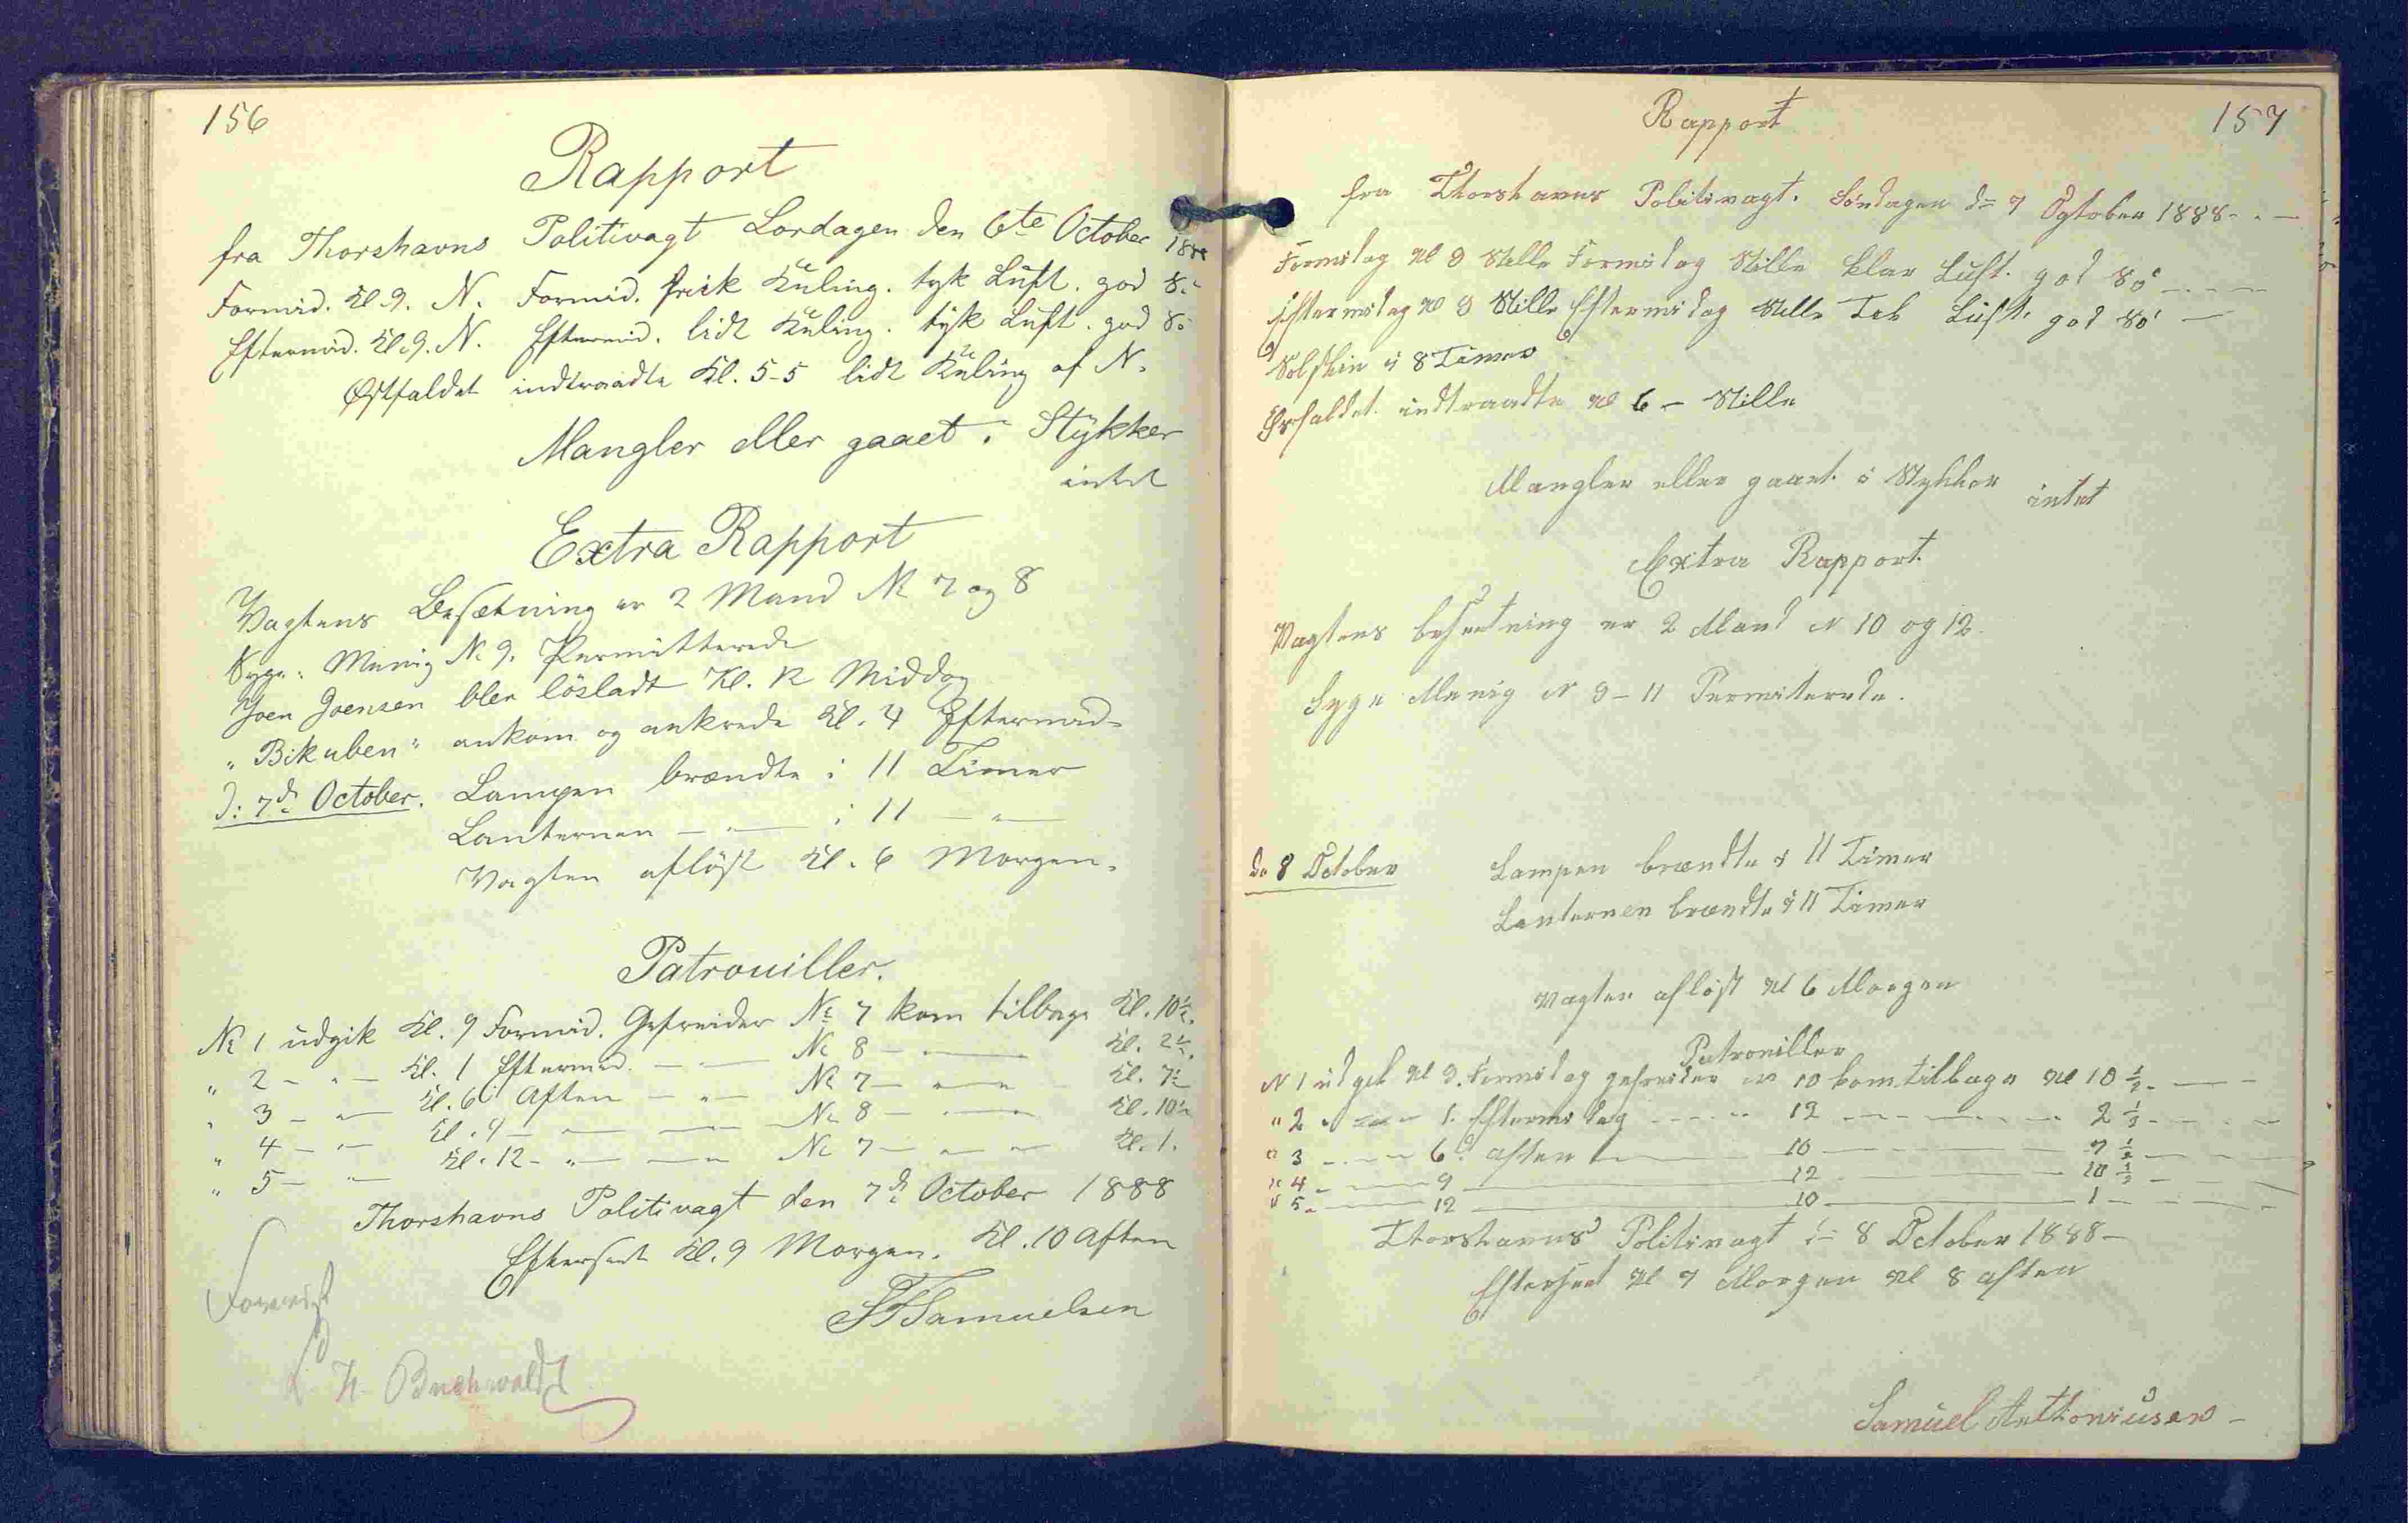 156
Rapport
fra Thorshavns Politivagt Lördagen den 6te October 1888
Formid. Kl. 9. N. Formid. frisk Kuling. tyk Luft. god Sö
Eftermid. Kl. 9. N. Eftermid. lidt Kuling. tyk Luft. god Sö
Østfaldet indtraadte Kl. 5-5 lidt Kuling af N.
Mangler eller gaaet i Stykker
intet
Extra Rapport
Vagtens Besætning er 2 Mand No 7 og 8
Syge: Menig No 9. Permitterede
Joen Joensen blev lösladt Kl. 12 Middag
"Bikuben" ankom og ankrede Kl. 4 Eftermid.
D: 7de October. Lampen brændte i 11 Timer
Lanternen — " — i 11 — " —
Vagten aflöst Kl. 6 Morgen.
Patrouiller.
No 1 udgik Kl. 9 Formid. Gefreider No 7 kom tilbage Kl. 10½.
" 2 — " — Kl. 1 Eftermid. — — No 8 — — Kl. 2½.
" 3 — " — Kl. 6 Aften — " — No 7 — " — Kl. 7½
" 4 — " — Kl. 9 — — — No 8 — — Kl. 10½
" 5 — " — Kl. 12 — " — — No 7 — " — Kl. 1.
Thorshavns Politivagt den 7de October 1888
Efterseet Kl. 9 Morgen. Kl. 10 Aften
Samuelsen
Forevist
H. Buchwaldt
157
Rapport
fra Thorshavns Politivagt. Söndagen d= 7 Ogtober 1888 - . —
Formidag Kl 9 Stille Formidag Stille klar Luft. god Sö — . — —
Eftermidag Kl 9 Stille Eftermidag Stille Tek Luft. god Sö —
Solskin i 8 Timer
indtraadte Kl 6 — Stille
Mangler eller gaaet. i Stykker intet
Extra Rapport.
Vagtens besætning er 2 Mand N 10 og 12.
Syge Menig N 9 – 11 Permiterede.
D. 8 October Lampen brændte i 11 Timer
Lanternen brændte i 11 Timer
Vagten aflöst Kl 6 Morgen
Patrouiller
N 1 udgik Kl 9. Formidag gefreider N 10 kom tilbage Kl 10 ½ — —
" 2 " — 1. Eftermidag — — 12 — — — 2 ½ — — —
" 3 — — 6 aften — 10 — — 7 ½ — — —
" 4 — — 9 — 12 — 10 ½ — —
" 5 — — 12 — 10 — 1 — — —
Thorshavns Politivagt d= 8 October 1888 —
Efterseet Kl 7 Morgen Kl 8 aften
Samuel Anthoniusen —